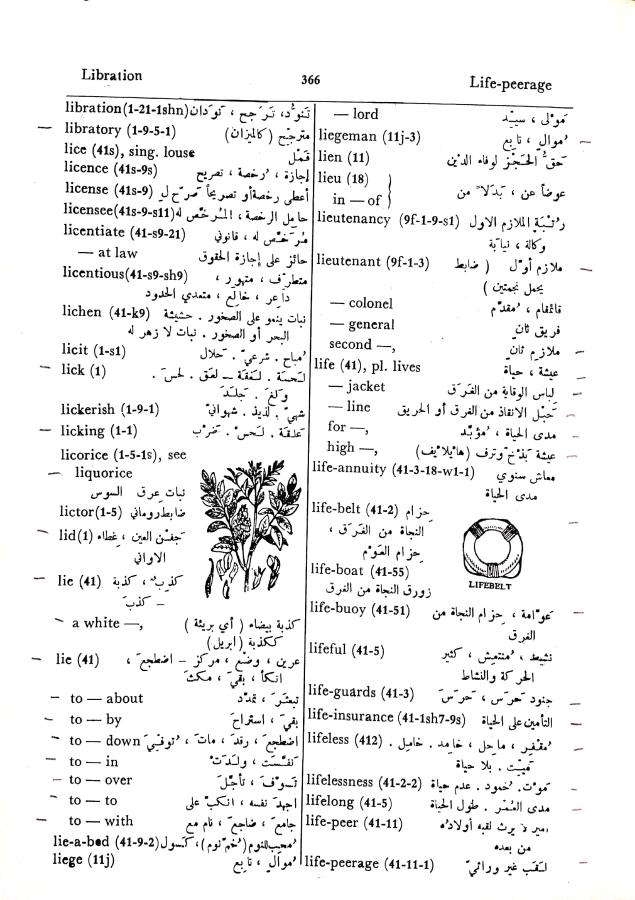 Libration
366
Life-peerage
libration(1-21-1shn) تَنَوُّد، تَرَجح ، نَوَدان
libratory (1-9-5-1) مترجّح (كالميزان)
lice (41s), sing. louse قَمْل
licence (41s-9s) إجازة ، رُخصة ، تصريح
license (41s-9) أعطى رخصة أو تصريحاً صَرّح لِ
licensee(41s-9-s11) حامل الرخصة ، المُرخّص له
licentiate (41-s9-21) مُرَخّص له ، قانوني
— at law حائز على إجازة الحقوق
licentious(41-s9-sh9) متطرّف ، متهور ،
داعر ، خالع ، متعدي الحدود
lichen (41-k9) نبات ينمو على الصخور . حشيشة
البحر أو الصخور . نبات لا زهر له
licit (1-s1) مُباح . شرعيّ . حَلال
lick (1) لَحسة . لَعْقة – لعق . لحَس .
وَلَغَ . جَلَدَ
lickerish (1-9-1) شهيّ . لذيذ . شهوانيّ
licking (1-1) عَلْقة . لَحْس . ضَرْب
licorice (1-5-1s), see
liquorice
نبات عرق السوس
lictor(1-5) ضابط روماني
lid(1) جفن العين ، غطاء
الاواني
lie (41) كذِب ، كذبة
– كذَب
a white —, كذبة بيضاء ( أي بريئة )
ككذبة (ابريل)
lie (41) عرين ، وضْع ، مركز – اضطجع ،
اتكأ ، بقيَ ، مكث
to — about تبعثَر ، تمدّد
to — by بقيَ ، استراح
to — down اضطجع ، رقدَ ، ماتَ ، تُوفيَ
to — in نَفِسَت ، ولدَت
to — over تسوّف ، تأجّل
to — to اجهد نفسه ، انكبّ على
to — with جامع ، ضاجع ، نام مع
lie-a-bed (41-9-2) مُحِب للنوم (خُم نوم) ، كَسول
liege (11j) مُوالٍ ، تابع
— lord مَولى ، سيّد
liegeman (11j-3) مُوالٍ ، تابِع
lien (11) حَقّ الحَجْز لوفاء الدَيْن
lieu (18)
in — of
عوضاً عن ، بَدَلاً من
lieutenancy (9f-1-9-s1) رُتْبَة الملازم الاول
وكالة ، نيابة
lieutenant (9f-1-3) ملازم أوّل ( ضابط
يحمل نجمتين )
— colonel قائمقام ، مُقدّم
— general فريق ثانٍ
second —, ملازم ثانٍ
life (41), pl. lives عيشة ، حياة
— jacket لباس الوقاية من الغَرَق
— line حَبْل الانقاذ من الغرق أو الحريق
for —, مدى الحياة ، مُؤبّد
high —, عيشة بَذْخ وترف (هايلايف)
life-annuity (41-3-18-w1-1) معاش سنوي
مدى الحياة
life-belt (41-2) حِزام
النجاة من الغَرَق ،
حِزام العَوْم
LIFEBELT
life-boat (41-55)
زورق النجاة من الغرق
life-buoy (41-51) عَوّامة ، حزام النجاة من
الغرق
lifeful (41-5) نشيط ، مُنتعِش ، كثير
الحركة والنشاط
life-guards (41-3) جنود حَرَس ، حَرَس
life-insurance (41-1sh7-9s) التأمين على الحياة
lifeless (412) مُقفِر ، ماحل ، خامد . خامل .
مَيّت . بلا حياة
lifelessness (41-2-2) مَوت . خُمود . عدم حياة
lifelong (41-5) مدى العُمْر . طول الحياة
life-peer (41-11) امير لا يرث لقبه أولادُه
من بعده
life-peerage (41-11-1) لَقَب غير وراثيّ